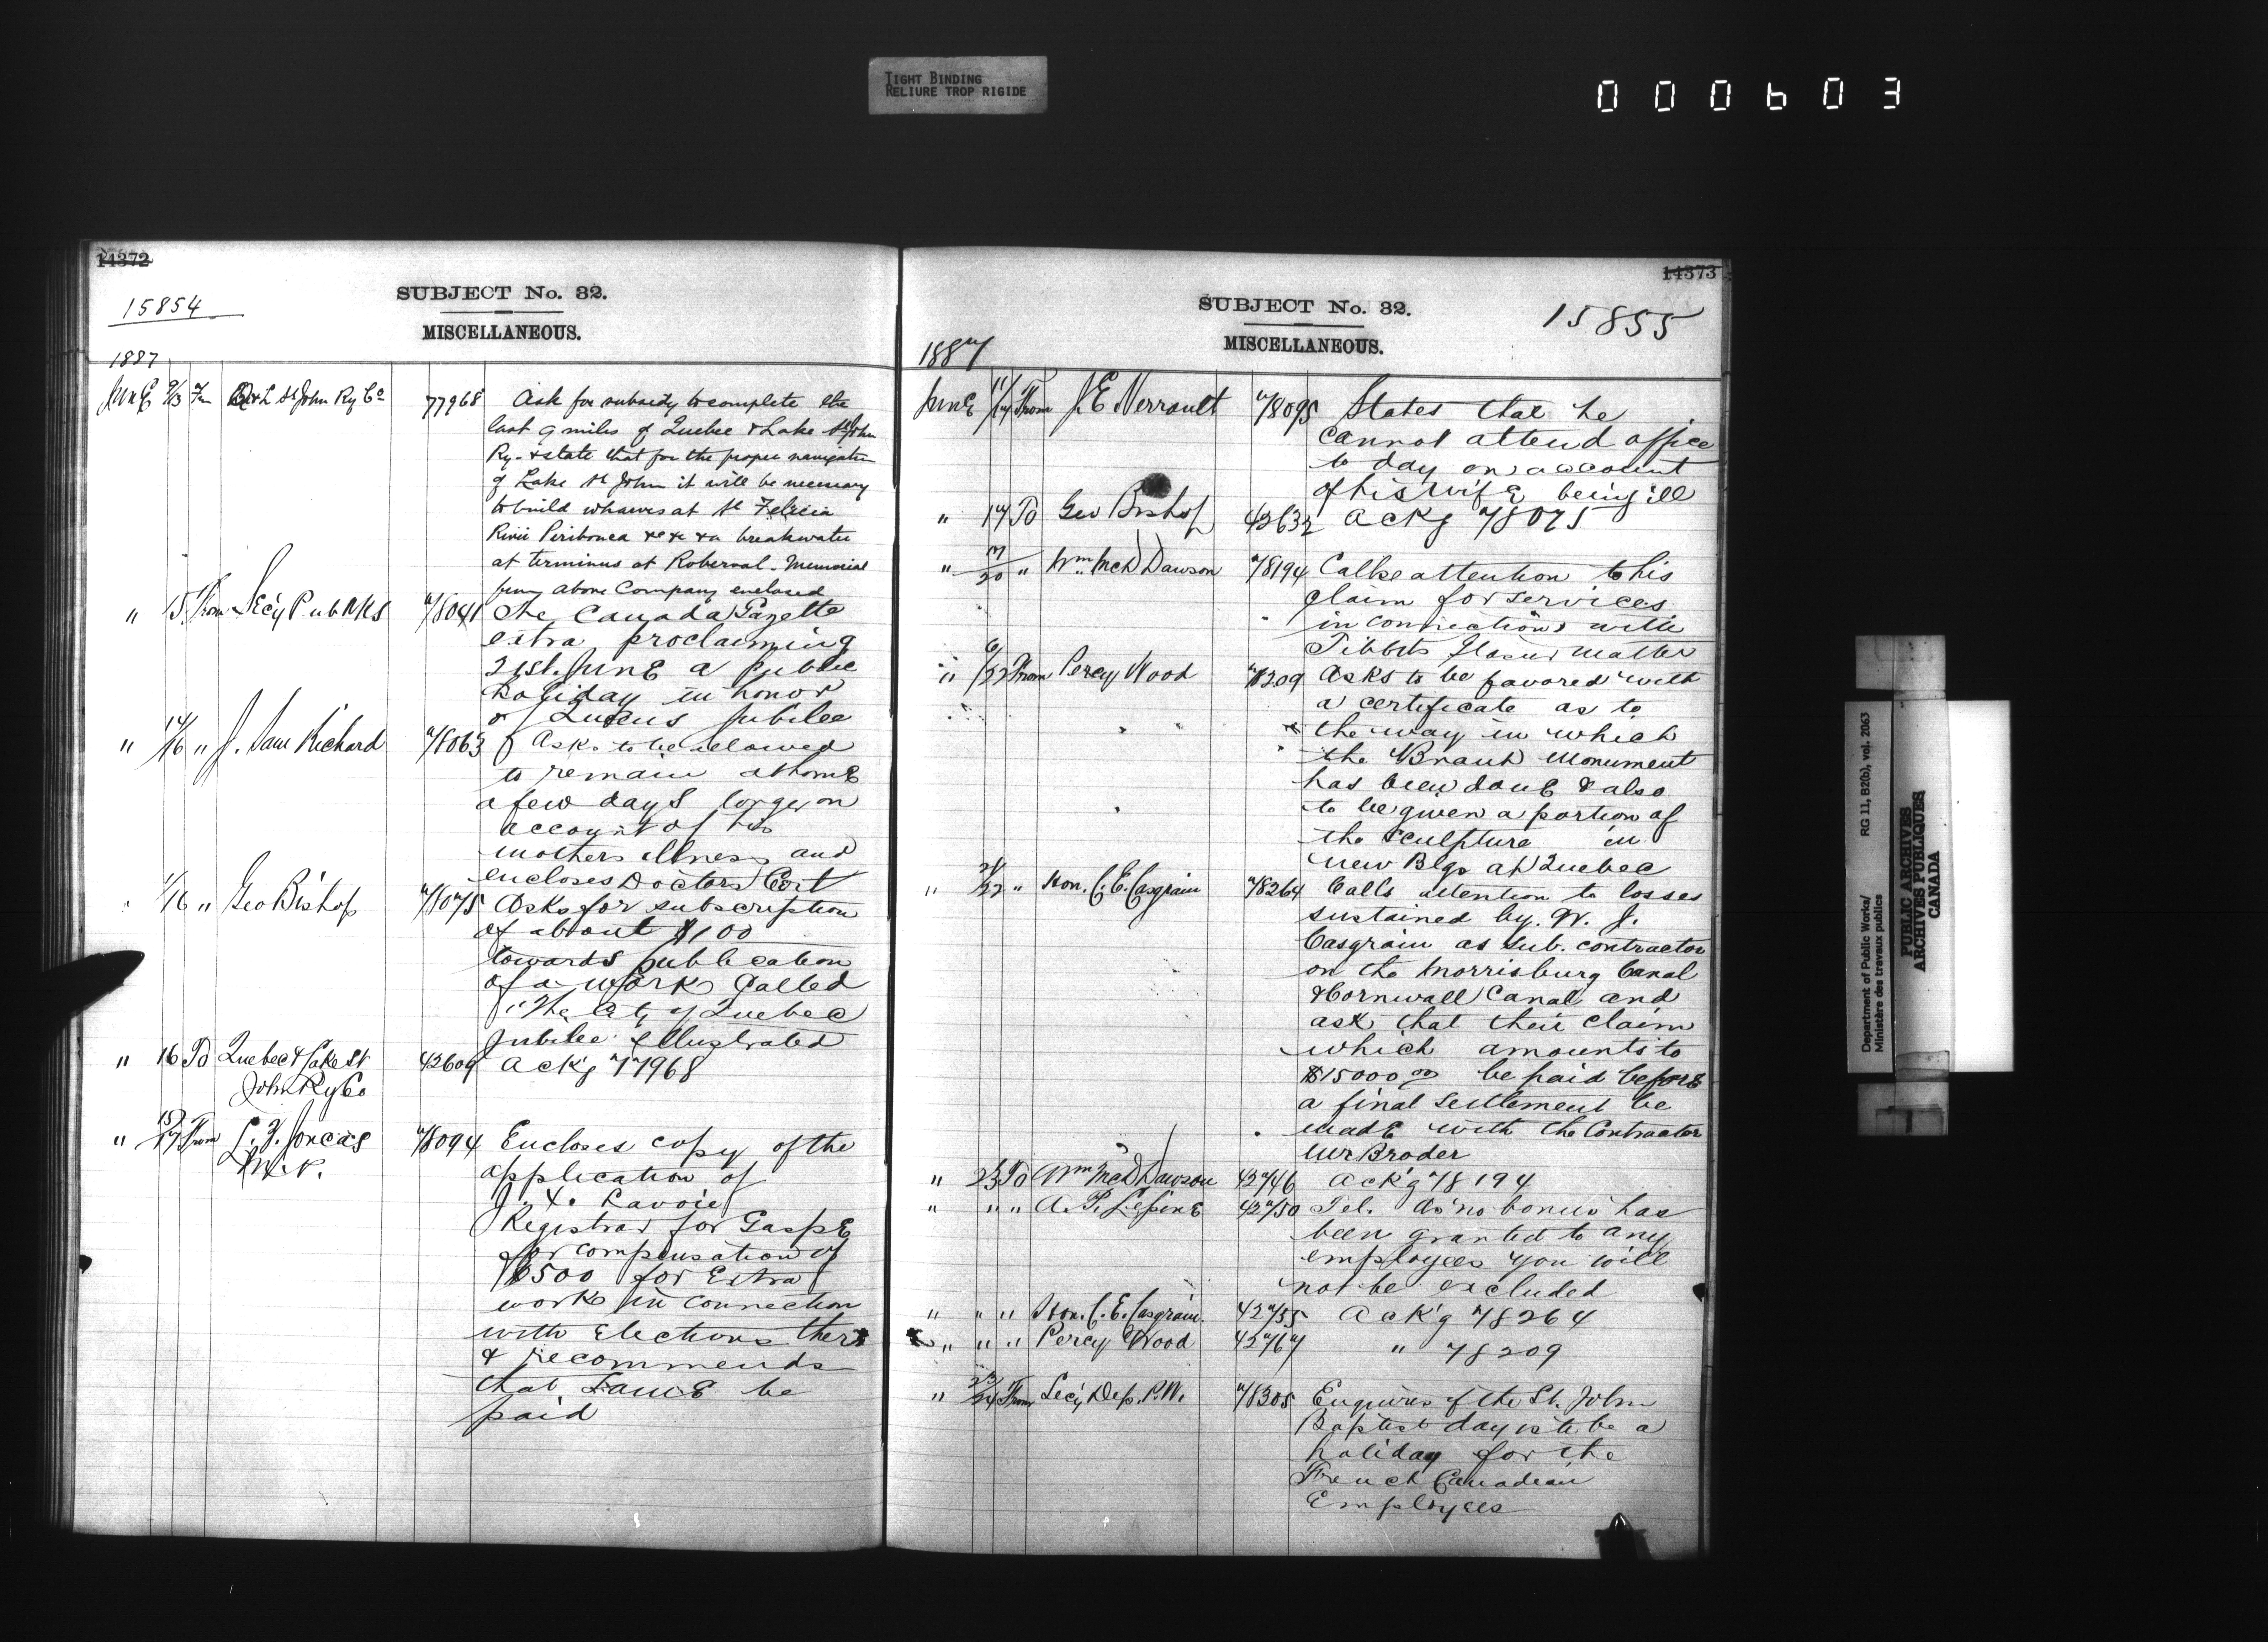 TIGHT BINDING
RELIURE TROP RIGIDE
000603
14372
15854
SUBJECT No. 32.
MISCELLANEOUS.
1887
June 9/13 Fm Q & L St John Ry Co 77968 Ask for subsidy to complete the
last 9 miles of Quebec & Lake St John
Ry. & state that for the proper navigation
of Lake St John it will be necessary
to build wharves at St Felicia
Peribonca &c &c & a breakwater
at terminus at Roberval. Memorial
from above Company enclosed
" 15 From Secy Pub Wks 78041 The Canada Gazette
extra proclaiming
21st. June a Public
holiday in honor
of Queens Jubilee
" 14/16 " J. Sam Richard 78063 Asks to be allowed
to remain at home
a few days longer on
account of his
mothers illness and
encloses Doctors Cert
/16 " Geo Bishop 78075 Asks for subscription
of about $100
towards publication
of a work called
"The City of Quebec
Jubilee Illustrated
" 16 To Quebec & Lake St 42609 Ack'g 77968
John Ry Co
" 15/17 From L. Z. Joncas 78094 Encloses copy of the
M.P.
application of
J. X. Lavoie
Registrar for Gaspe
for compensation of
$500 for Extra
work in connection
with Elections there
& recommends
that same be
paid
14373
SUBJECT No. 32.
15855
MISCELLANEOUS.
1887
June 17/17 From J. E. Perrault 78095 States that he
cannot attend office
to day on account
of his wife being ill
" 17 To Geo Bishop 42632 Ackg 78075
" 17/20 " Wm McD Dawson 78194 Calls attention to his
claim for services
in connection with
Tibbits matter
" /22 From Percy Wood 78209 Asks to be favored with
a certificate as to
the way in which
the Brant Monument
has been done & also
to be given a portion of
the sculpture in
new Blgs at Quebec
" 21/22 " Hon. C. E. Casgrain 78264 Calls attention to losses
sustained by. W. J.
Casgrain as sub. contractor
on the Morrisburg Canal
& Cornwall Canal and
ask that their claim
which amounts to
$15000 00 be paid before
a final settlement be
made with the Contractor
Mr Broder
" 23 To Wm McD Dawson 42746 Ack'g 78194
" " " A. P. Lepine 42750 Tel. As no bonus has
been granted to any
employees you will
not be excluded
" " " Hon. C. E. Casgrain. 42755 Ack'g 78264
" " " Percy Wood 42767 " 78209
" 23/24 From Secy Dep. P.W. 78305 Enquires if the St. John
Baptist day is to be a
holiday for the
French Canadian
Employees
Department of Public Works/
Ministère des travaux publics
RG 11, B2(b), vol. 2063
PUBLIC ARCHIVES
ARCHIVES PUBLIQUES
CANADA